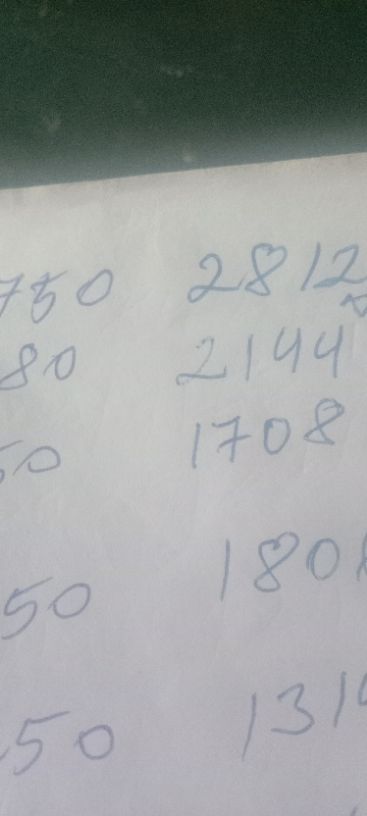 750 2812
80 2144
50 1708
50 180
50 131